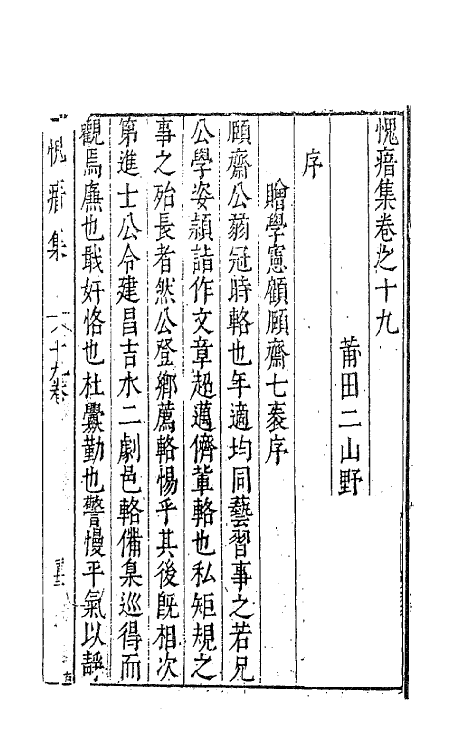 愧瘖集卷之十九
莆田二山野
序
贈學憲顧頤齋七袠序
頤齋公蒻冠時輅也年適均同藝習事之若兄
公學姿頴詣作文章超邁儕輩輅也私矩規之
事之殆長者然公登鄉薦輅惕乎其後既相次
第進士公令建昌吉水二劇邑輅備臬巡得而
觀焉亷也戢奸恪也杜釁勤也警慢平氣以靜
愧瘖集
十九卷